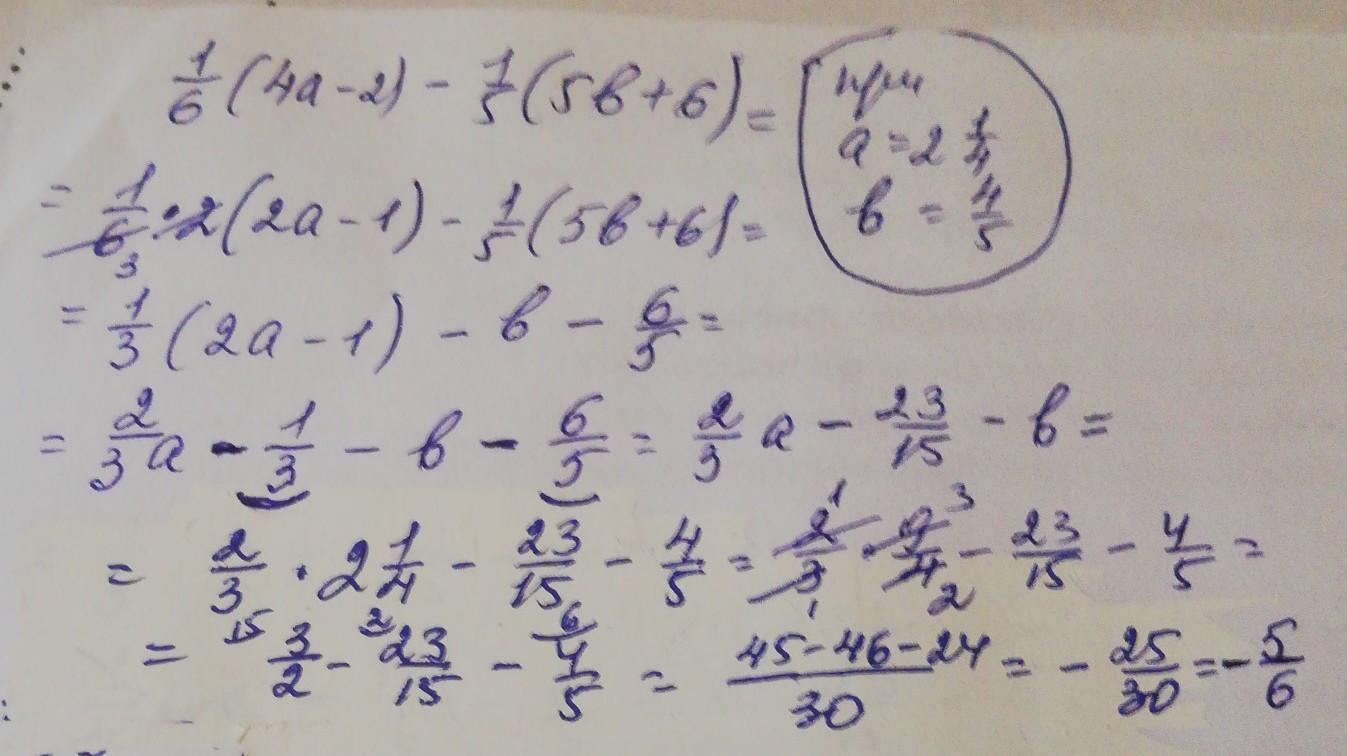 1/6 (4a - 2) - 1/5 (5b + 6) =
при
a = 2 1/4
b = 4/5
= 1/6 3 · 2 (2a - 1) - 1/5 (5b + 6) =
= 1/3 (2a - 1) - b - 6/5 =
= 2/3 a - 1/3 - b - 6/5 = 2/3 a - 23/15 - b =
= 2/3 · 2 1/4 - 23/15 - 4/5 = 2 1/3 1 · 9 3/4 2 - 23/15 - 4/5 =
= 15 3/2 - 2 23/15 - 6 4/5 = 45 - 46 - 24/30 = - 25/30 = - 5/6